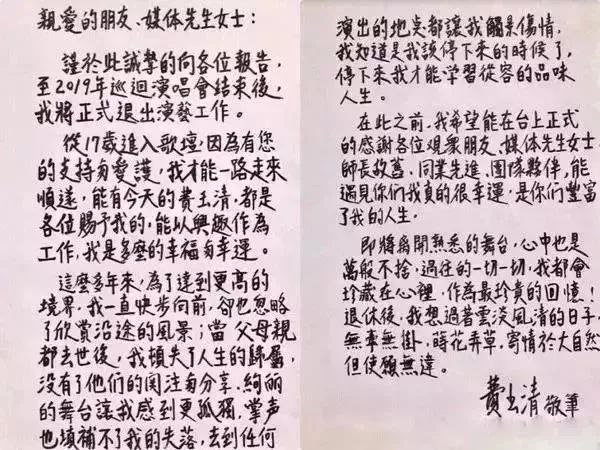 親愛的朋友、媒体先生女士：
謹於此誠摯的向各位報告，
至2019年巡迴演唱會結束後，
我將正式退出演藝工作。
從17歲進入歌壇，因為有您
的支持与愛護，我才能一路走來
順遂，能有今天的費玉清，都是
各位賜予我的，能以興趣作為
工作，我是多麼的幸福与幸運。
這麼多年來，為了達到更高的
境界，我一直快步向前，卻也忽略
了欣賞沿途的風景；當父母親
都去世後，我頓失了人生的歸屬，
沒有了他們的関注与分享，絢麗
的舞台讓我感到更孤獨，掌声
也填補不了我的失落，去到任何
演出的地点都讓我觸景傷情，
我知道是我該停下來的時候了，
停下來我才能學習從容的品味
人生。
在此之前，我希望能在台上正式
的感謝各位观衆朋友、媒体先生女士、
師長故舊、同業先進、团隊夥伴，能
遇見你們我真的很幸運，是你們豐富
了我的人生。
即將离開熟悉的舞台，心中也是
萬般不捨，過往的一切一切，我都會
珍藏在心裡，作為最珍貴的回憶！
退休後，我想過著雲淡風清的日子，
無牽無掛，蒔花弄草，寄情於大自然
但使願無違。
費玉清 敬筆